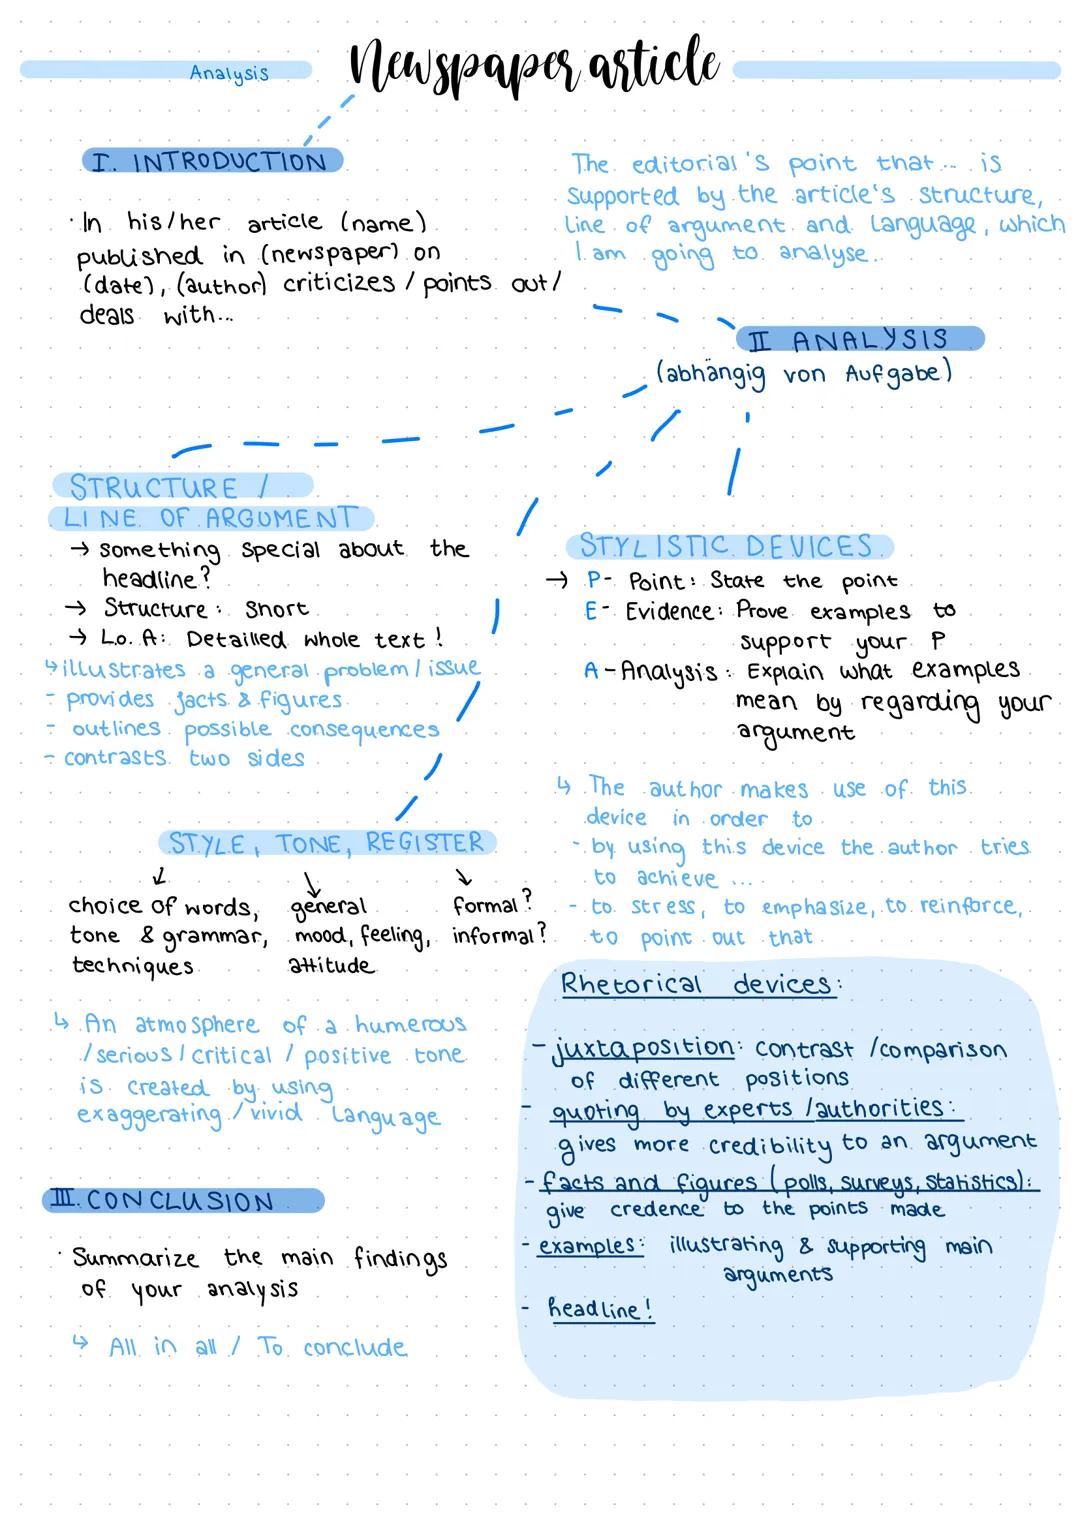 Analysis
Newspaper article
I. INTRODUCTION
· In his/her article (name)
published in (newspaper) on
(date), (author) criticizes / points out /
deals with...
The editorial's point that... is
supported by the article's structure,
line of argument and language, which
I am going to analyse..
II ANALYSIS
(abhängig von Aufgabe)
STRUCTURE /
LINE OF ARGUMENT
→ something special about the
headline?
→ Structure: Short
→ L.o. A: Detailled whole text!
↳ illustrates a general problem / issue
- provides facts & figures
- outlines possible consequences
- contrasts two sides
STYLISTIC DEVICES
→ P- Point: State the point
E- Evidence: Prove examples to
support your P
A - Analysis: Explain what examples
mean by regarding your
argument
↳ The author makes use of this
device in order to
- by using this device the author tries
to achieve ...
- to stress, to emphasize, to reinforce,
to point out that
STYLE, TONE, REGISTER
↙ ↓ ↘
choice of words,
tone & grammar,
techniques
general
mood, feeling,
attitude
formal?
informal?
↳ An atmosphere of a humerous
/ serious / critical / positive tone
is created by using
exaggerating / vivid language
III. CONCLUSION
· Summarize the main findings
of your analysis
↳ All in all / To conclude
Rhetorical devices:
- juxtaposition: contrast /comparison
of different positions
- quoting by experts /authorities:
gives more credibility to an argument
- facts and figures (polls, surveys, statistics):
give credence to the points made
- examples: illustrating & supporting main
arguments
- headline!